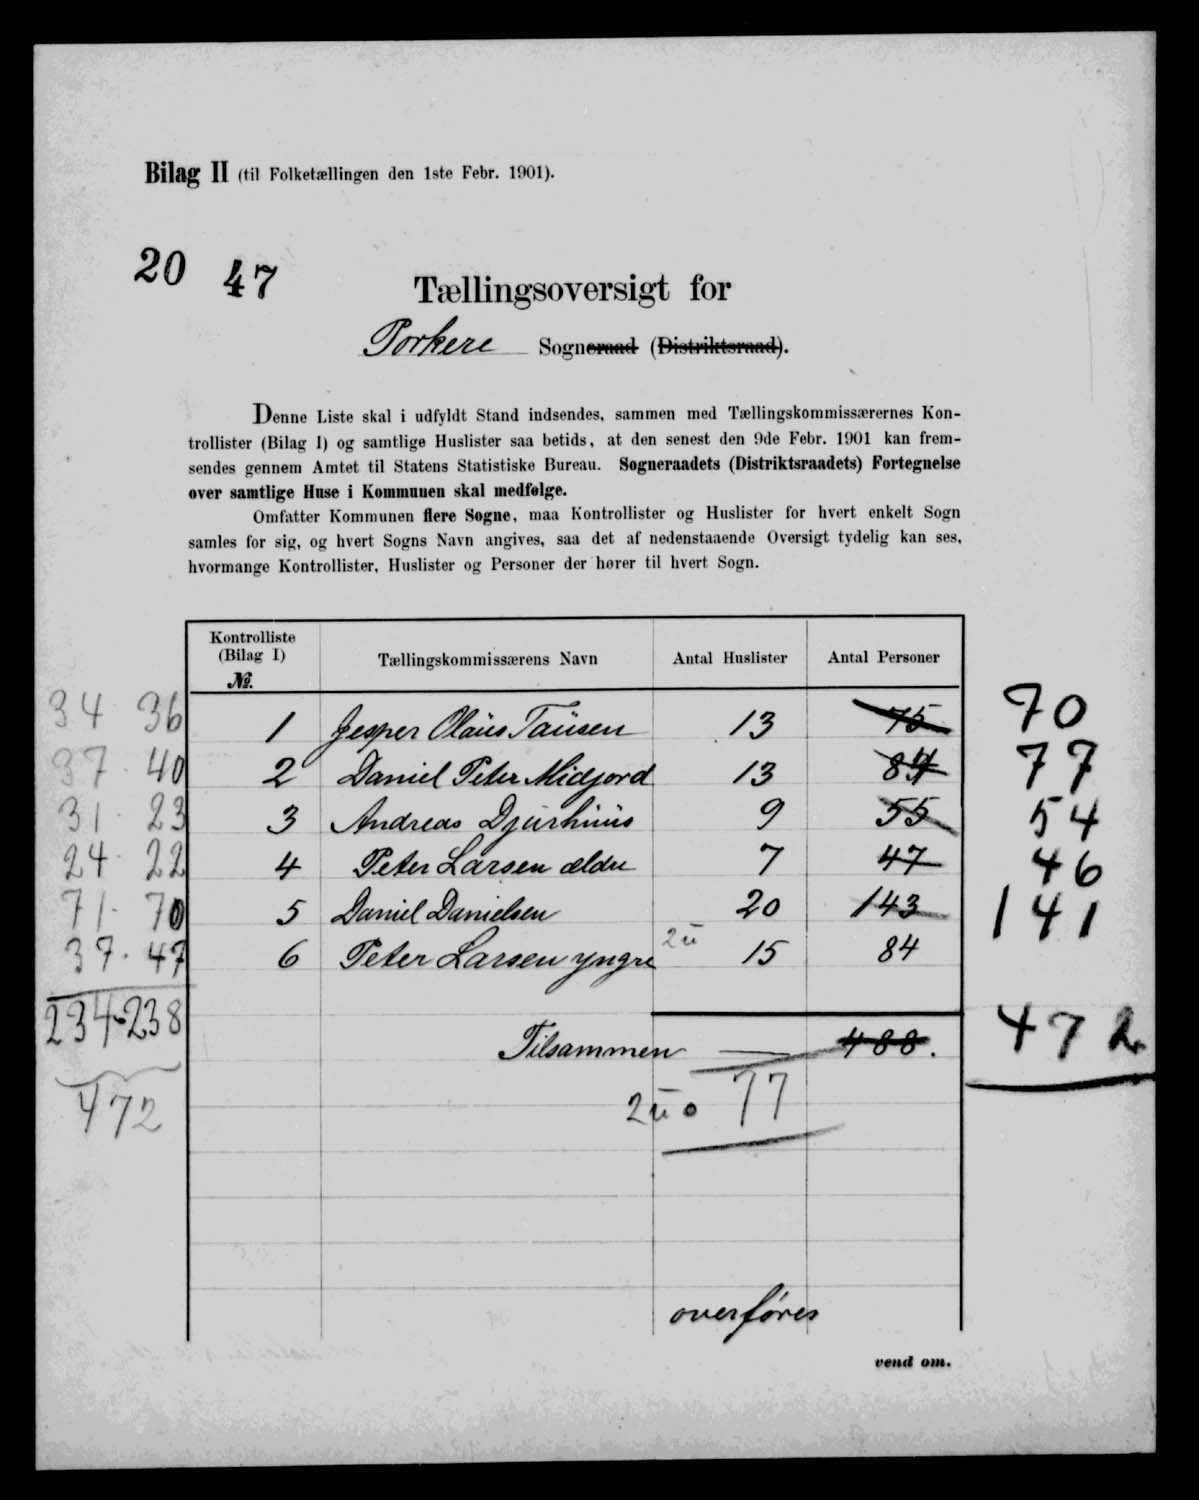 Bilag II (til Folketællingen den 1ste Febr. 1901).
20 47
Tællingsoversigt for
Porkere Sogneraad (Distriktsraad).
Denne Liste skal i udfyldt Stand indsendes, sammen med Tællingskommissærernes Kon-
trollister (Bilag I) og samtlige Huslister saa betids, at den senest den 9de Febr. 1901 kan frem-
sendes gennem Amtet til Statens Statistiske Bureau. Sogneraadets (Distriktsraadets) Fortegnelse
over samtlige Huse i Kommunen skal medfølge.
Omfatter Kommunen flere Sogne, maa Kontrollister og Huslister for hvert enkelt Sogn
samles for sig, og hvert Sogns Navn angives, saa det af nedenstaaende Oversigt tydelig kan ses,
hvormange Kontrollister, Huslister og Personer der hører til hvert Sogn.
Kontrolliste
(Bilag I)
No.
Tællingskommissærens Navn
Antal Huslister
Antal Personer
34 36 1 Jesper Olaüs Taüsen 13 75 70
37 · 40 2 Daniel Peter Midjord 13 84 77
31 · 23 3 Andreas Djurhüüs 9 55 54
24 · 22 4 Peter Larsen ældre 7 47 46
71 · 70 5 Daniel Danielsen 20 143 141
37 · 47 6 Peter Larsen yngre 2ü 15 84
234-238 Tilsammen 488. 472
472 2ü o 77
overføres
vend om.